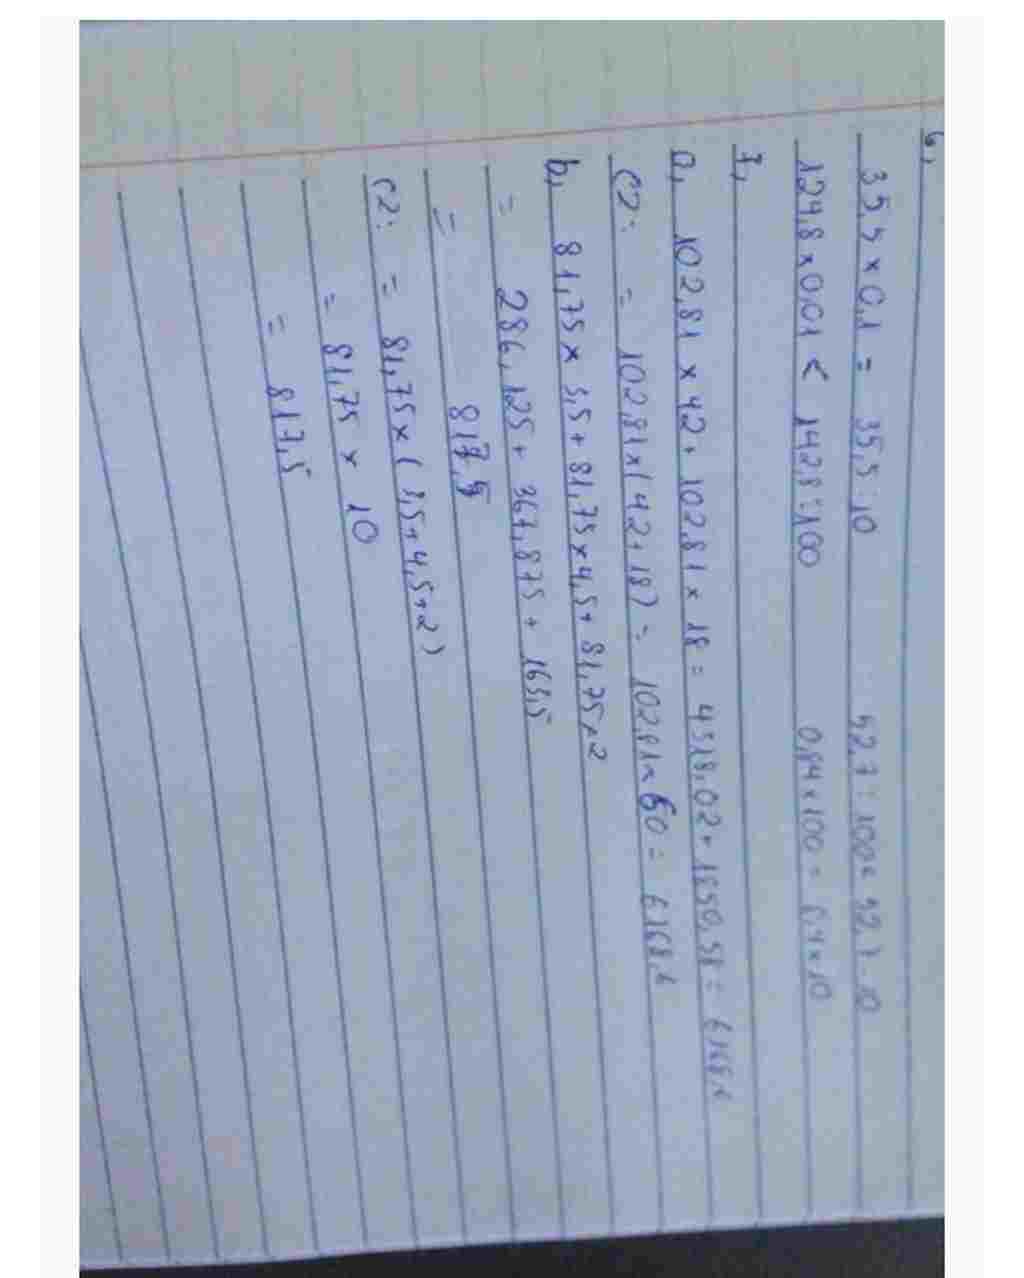 6,
35,5 × 0,1 = 35,5 : 10 52,7 : 100 < 52,7 : 10
124,8 × 0,01 < 142,8 : 100 0,64 × 100 = 6,4 × 10
7,
a, 102,81 × 42 + 102,81 × 18 = 4318,02 + 1850,58 = 6168,6
C2: = 102,81 × ( 42 + 18 ) = 102,81 × 60 = 6168,6
b, 81,75 × 3,5 + 81,75 × 4,5 + 81,75 × 2
= 286,125 + 367,875 + 163,5
= 817,5
C2: = 81,75 × ( 3,5 + 4,5 + 2 )
= 81,75 × 10
= 817,5